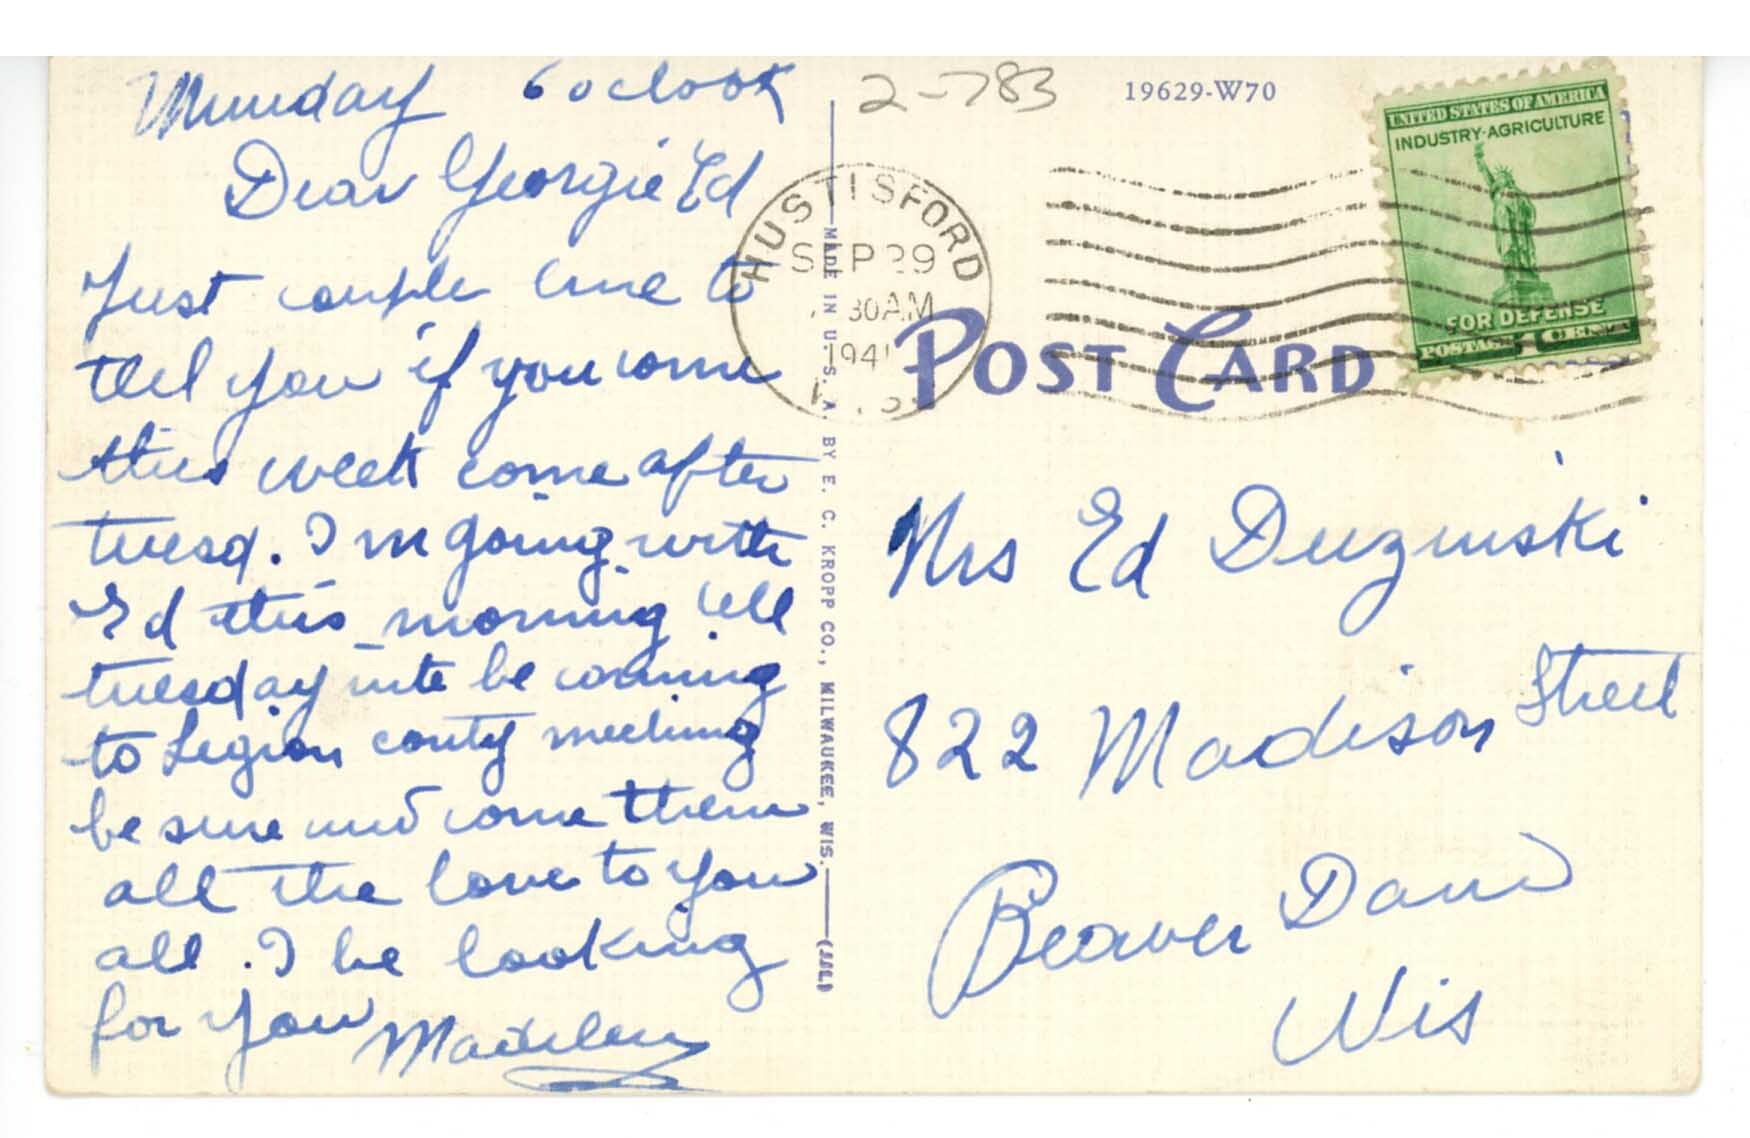 Munday 6 oclook
Dear Georgie Ed
Just couple line to
tell you if you come
this week come after
tuesd. I m going with
Ed this morning till
tuesday nite be coming
to Legion conty meeting
be sure and come them
all the love to you
all. I be looking
for you
2-783
19629-W70
UNITED STATES OF AMERICA
INDUSTRY-AGRICULTURE
FOR DEFENSE
POSTAGE 1 CENT
HUSTISFORD
SEP 29
30AM
1941
WIS.
POST CARD
MADE IN U.S.A. BY E. C. KROPP CO., MILWAUKEE, WIS.
Mrs Ed Duzinski
822 Madison Street
Beaver Dam
Wis